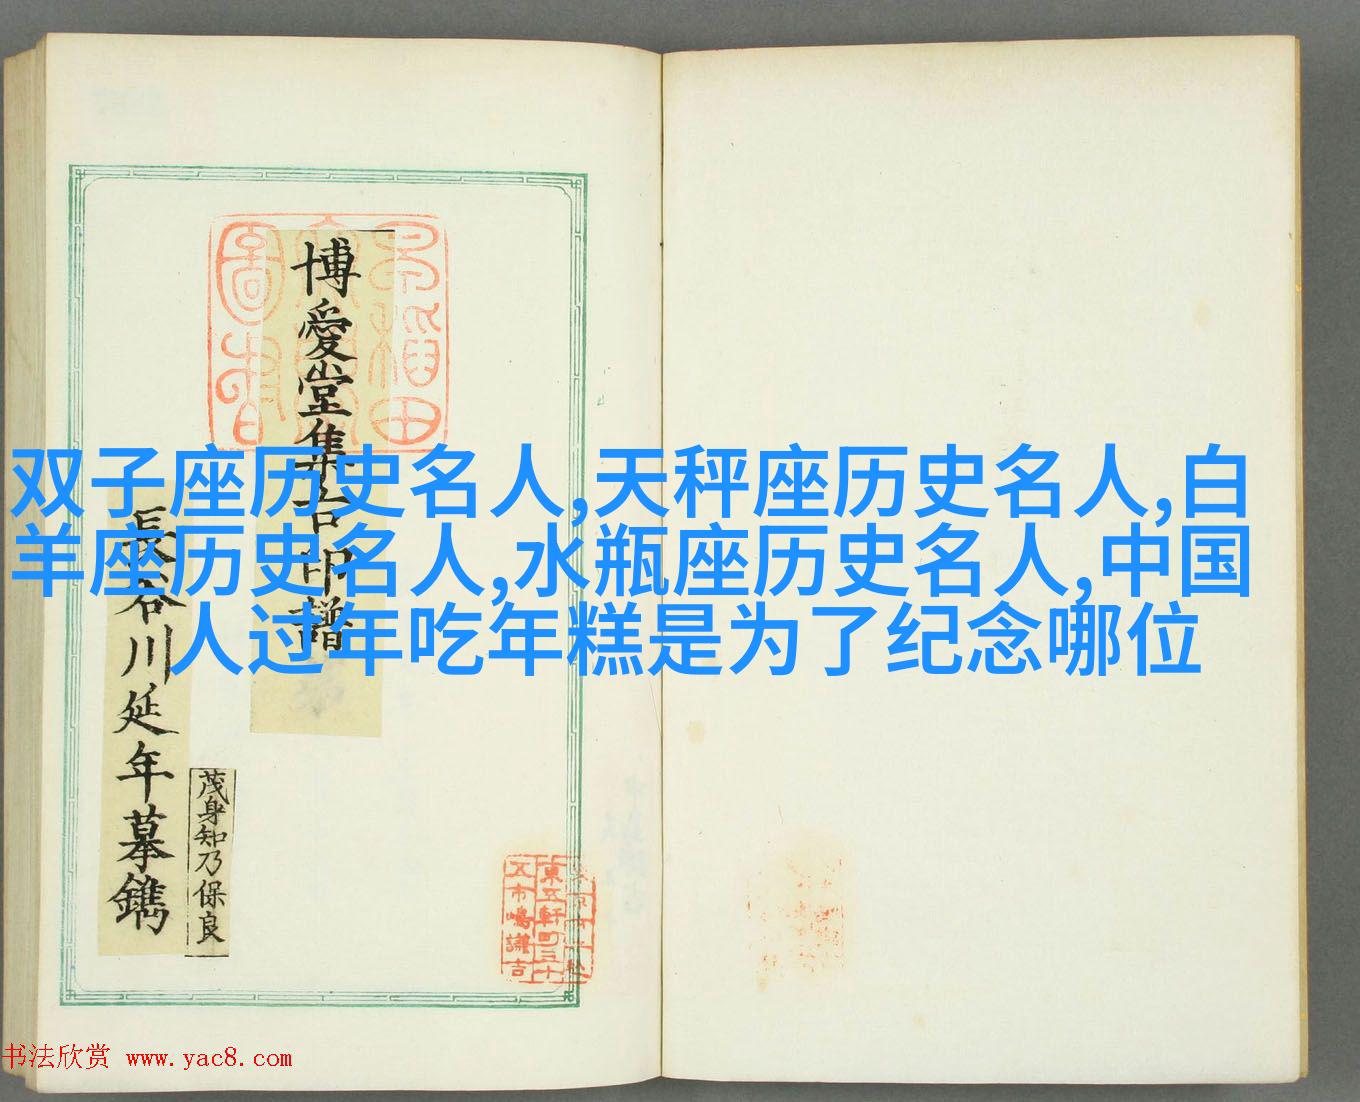 双子座历史名人,天秤座历史名人,白
羊座历史名人,水瓶座历史名人,中国
人过年吃年糕是为了纪念哪位
博愛堂集古印譜
長谷川延年摹鐫
茂身知乃保良
東五軒町三十
五市嶋謙吉
书法欣赏 www.yac8.com